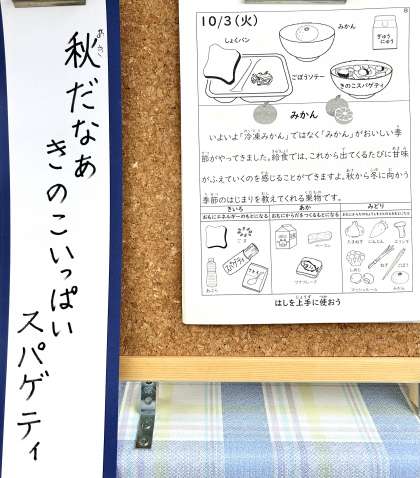 秋だなぁ
きのこいっぱい
スパゲティ
10/3(火)
みかん
しょくパン
ぎゅうにゅう
ごぼうソテー
きのこスパゲティ
みかん
いよいよ「冷凍みかん」ではなく「みかん」がおいしい季
節がやってきました。給食では、これから出てくるたびに甘味
がふえていくのを感じることができますよ。秋から冬に向かう
季節のはじまりを教えてくれる果物です。
きいろ
あか
みどり
おもにエネルギーのもとになる
おもにからだをつくるもとになる
ごま
スパゲティ
あぶら
ベーコン
ツナフレーク
たまねぎ
にんじん
しめじ
ねぎ
ごぼう
マッシュルーム
みかん
はしを上手に使おう